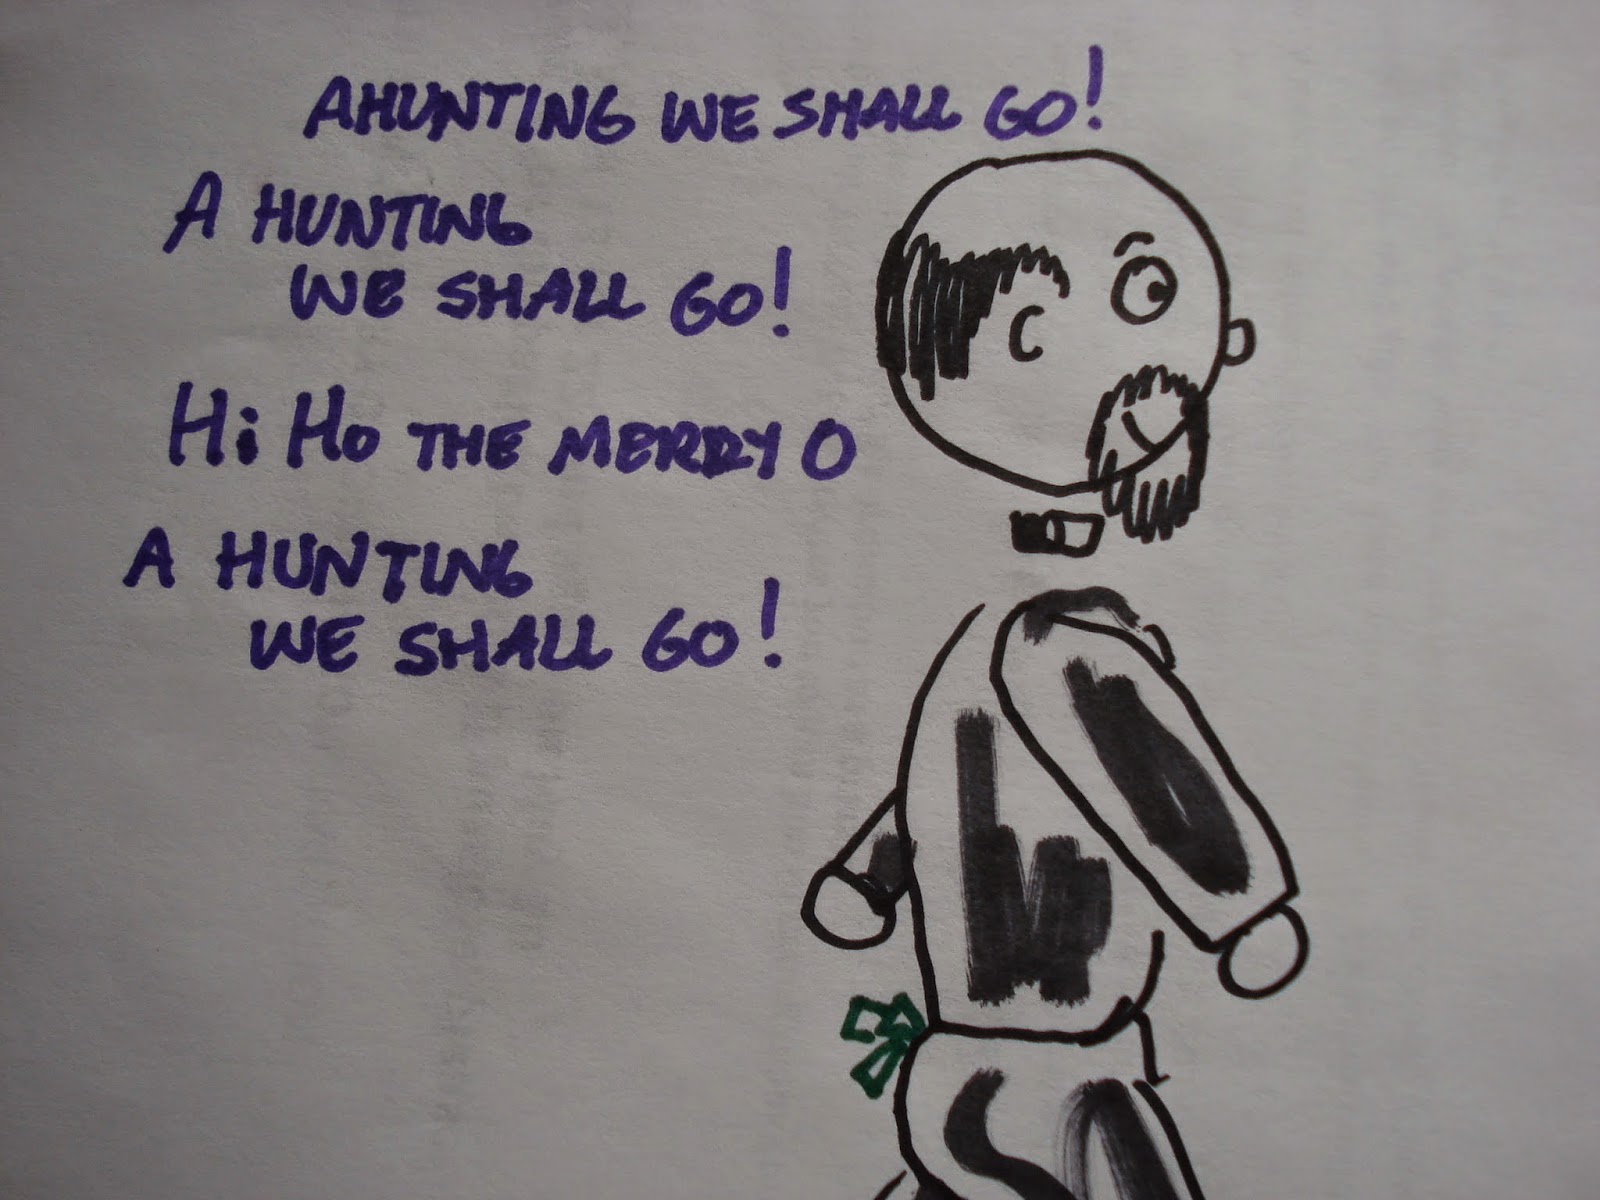 AHUNTING WE SHALL GO!
A HUNTING
WE SHALL GO!
Hi Ho THE MERRY O
A HUNTING
WE SHALL GO!